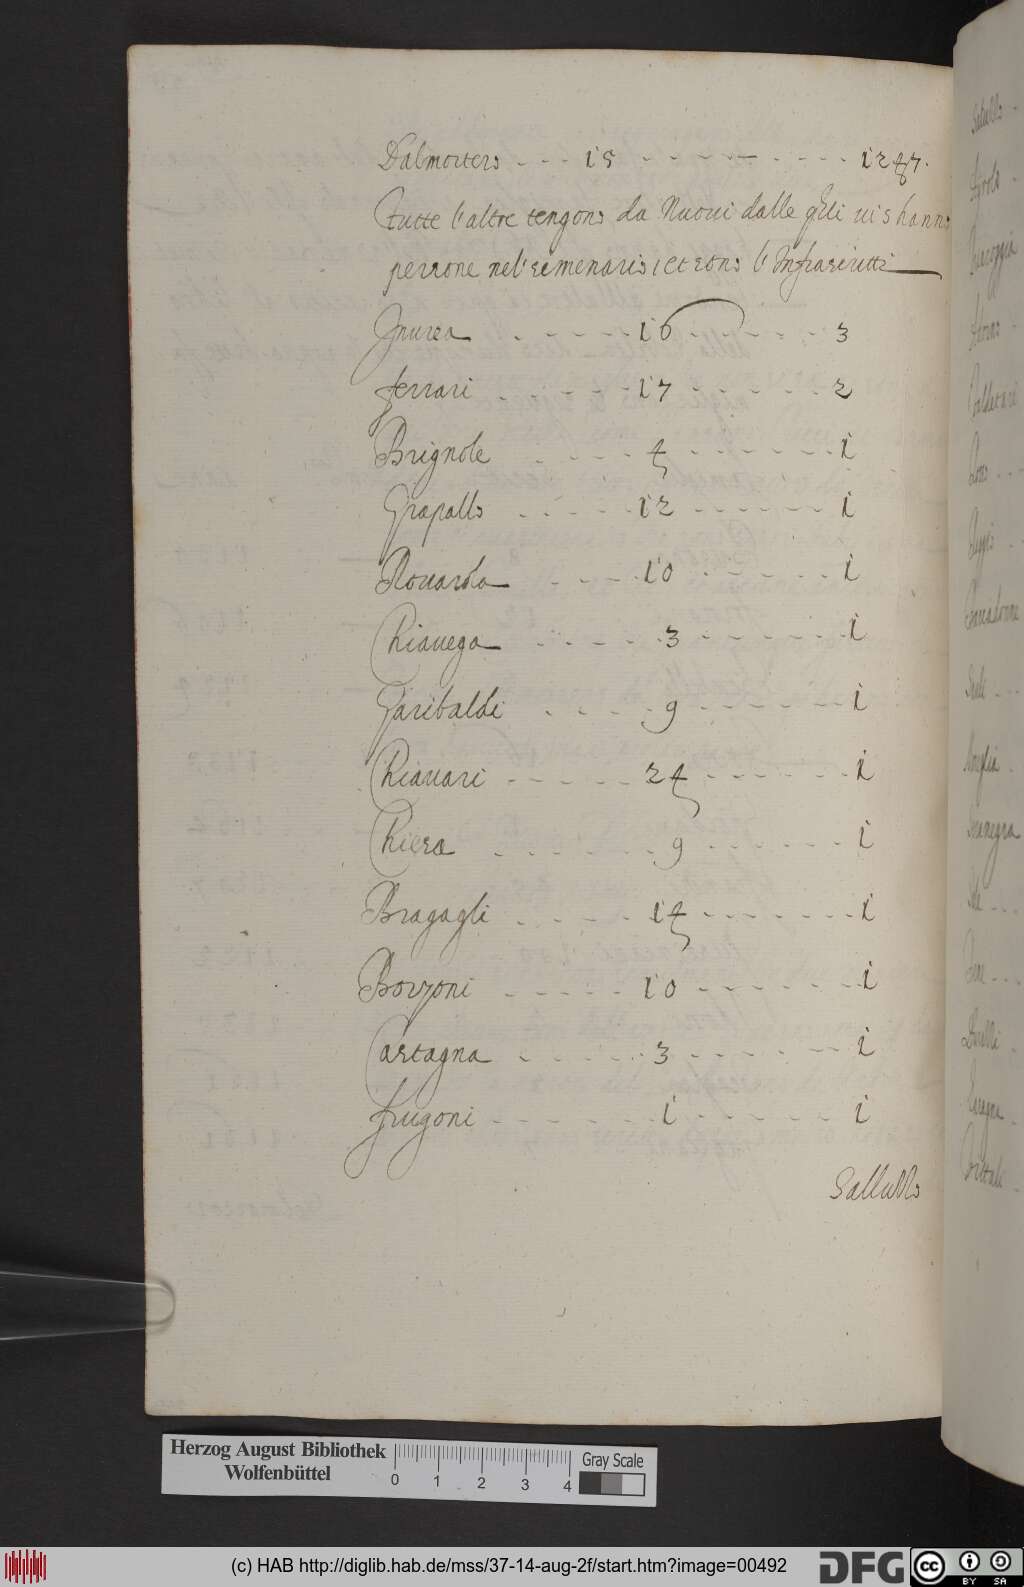 Dalmortero --- 15 ---- — ---- 1247.
tutte l'altre tengono da Nuoui dalle qlli ui s hanno
perzone nel semenario, et sono l'Infrascritti
Inurea ----- 16 ----- 3
ferrari ----- 17 ----- 2
Brignole ----- 4 ----- 1
Grapallo ----- 12 ----- 1
Rouarola ----- 10 ----- 1
Chiauega ----- 3 ----- 1
Garibaldi ----- 9 ----- 1
Chiauari ----- 24 ----- 1
Chiesa ----- 9 ----- 1
Bragagli ----- 14 ----- 1
Borzoni ----- 10 ----- 1
Castagna ----- 3 ----- 1
frugoni ----- 1 ----- 1
Salluzzo
Herzog August Bibliothek
Wolfenbüttel
0 1 2 3 4
Gray Scale
(c) HAB http://diglib.hab.de/mss/37-14-aug-2f/start.htm?image=00492
DFG
cc BY SA